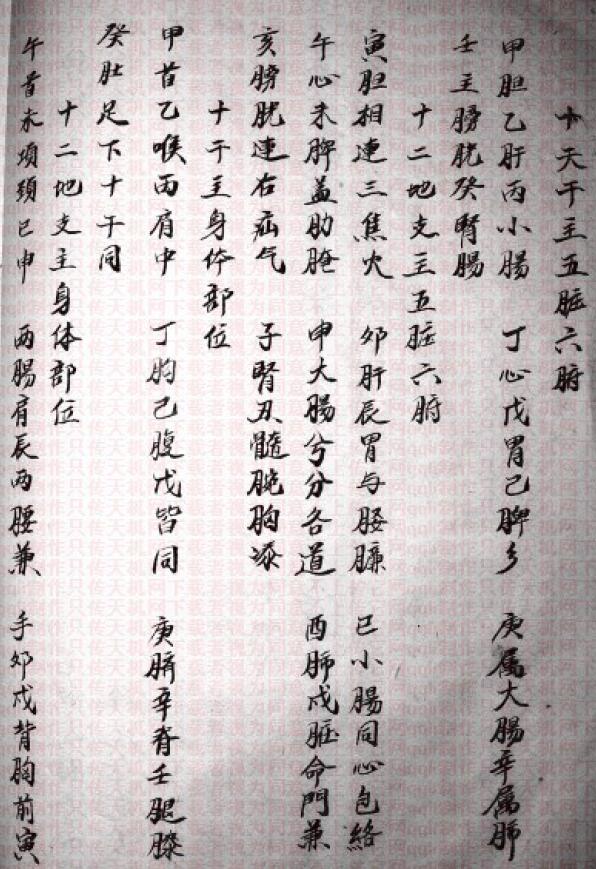 十天干主五脏六腑
甲胆乙肝丙小腸 丁心戊胃己脾乡 庚属大腸辛属肺
壬主膀胱癸腎腸
十二地支主五脏六腑
寅胆相連三焦火 夘肝辰胃与腰臁 巳小腸同心包絡
午心未脾益肋腌 申大腸兮分各道 酉肺戌脏命門兼
亥膀胱連右疝气 子腎丑髓腕胸添
十干主身体部位
甲首乙喉丙肩中 丁胸己腹戊皆同 庚臍辛脊壬腿膝
癸肚足下十干同
十二地支主身体部位
午首未項頚巳申 两腸肩辰两腰兼 手夘戌背胸前寅